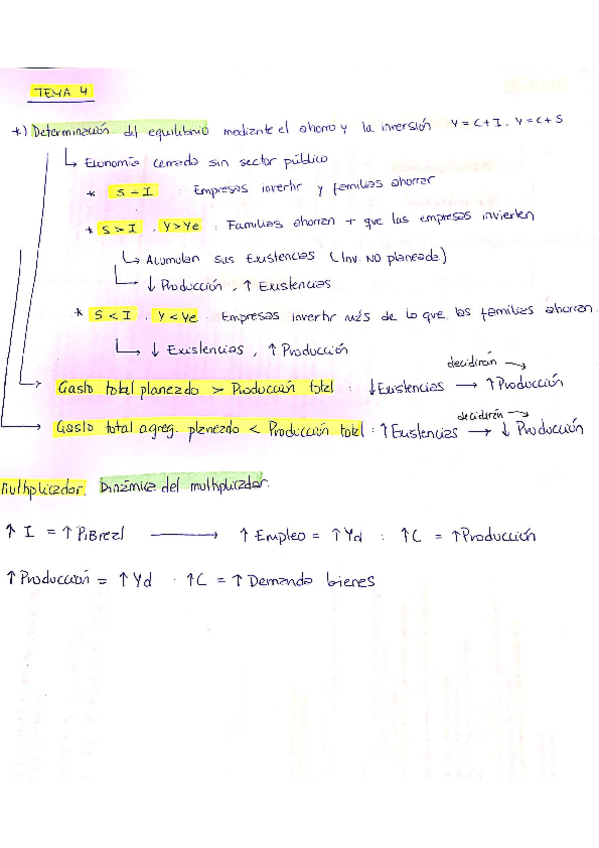 TEMA 4
*) Determinación del equilibrio mediante el ahorro y la inversión Y = C + I. Y = C + S
↳ Economía cerrada sin sector público
* S = I : Empresas invertir y familias ahorrar
* S > I , Y > Ye : Familias ahorran + que las empresas invierten
↳ Acumulan sus Existencias (Inv. NO planeada)
↳ ↓ Producción , ↑ Existencias
* S < I , Y < Ye . Empresas invertir más de lo que las familias ahorran.
↳ ↓ Existencias , ↑ Producción
Gasto total planeado > Producción total : ↓ Existencias → decidirán ↑ Producción
Gasto total agreg. planeado < Producción total : ↑ Existencias → decidirán ↓ Producción
Multiplicador. Dinámica del multiplicador.
↑ I = ↑ PIBreal → ↑ Empleo = ↑ Yd : ↑ C = ↑ Producción
↑ Producción = ↑ Yd : ↑ C = ↑ Demanda bienes